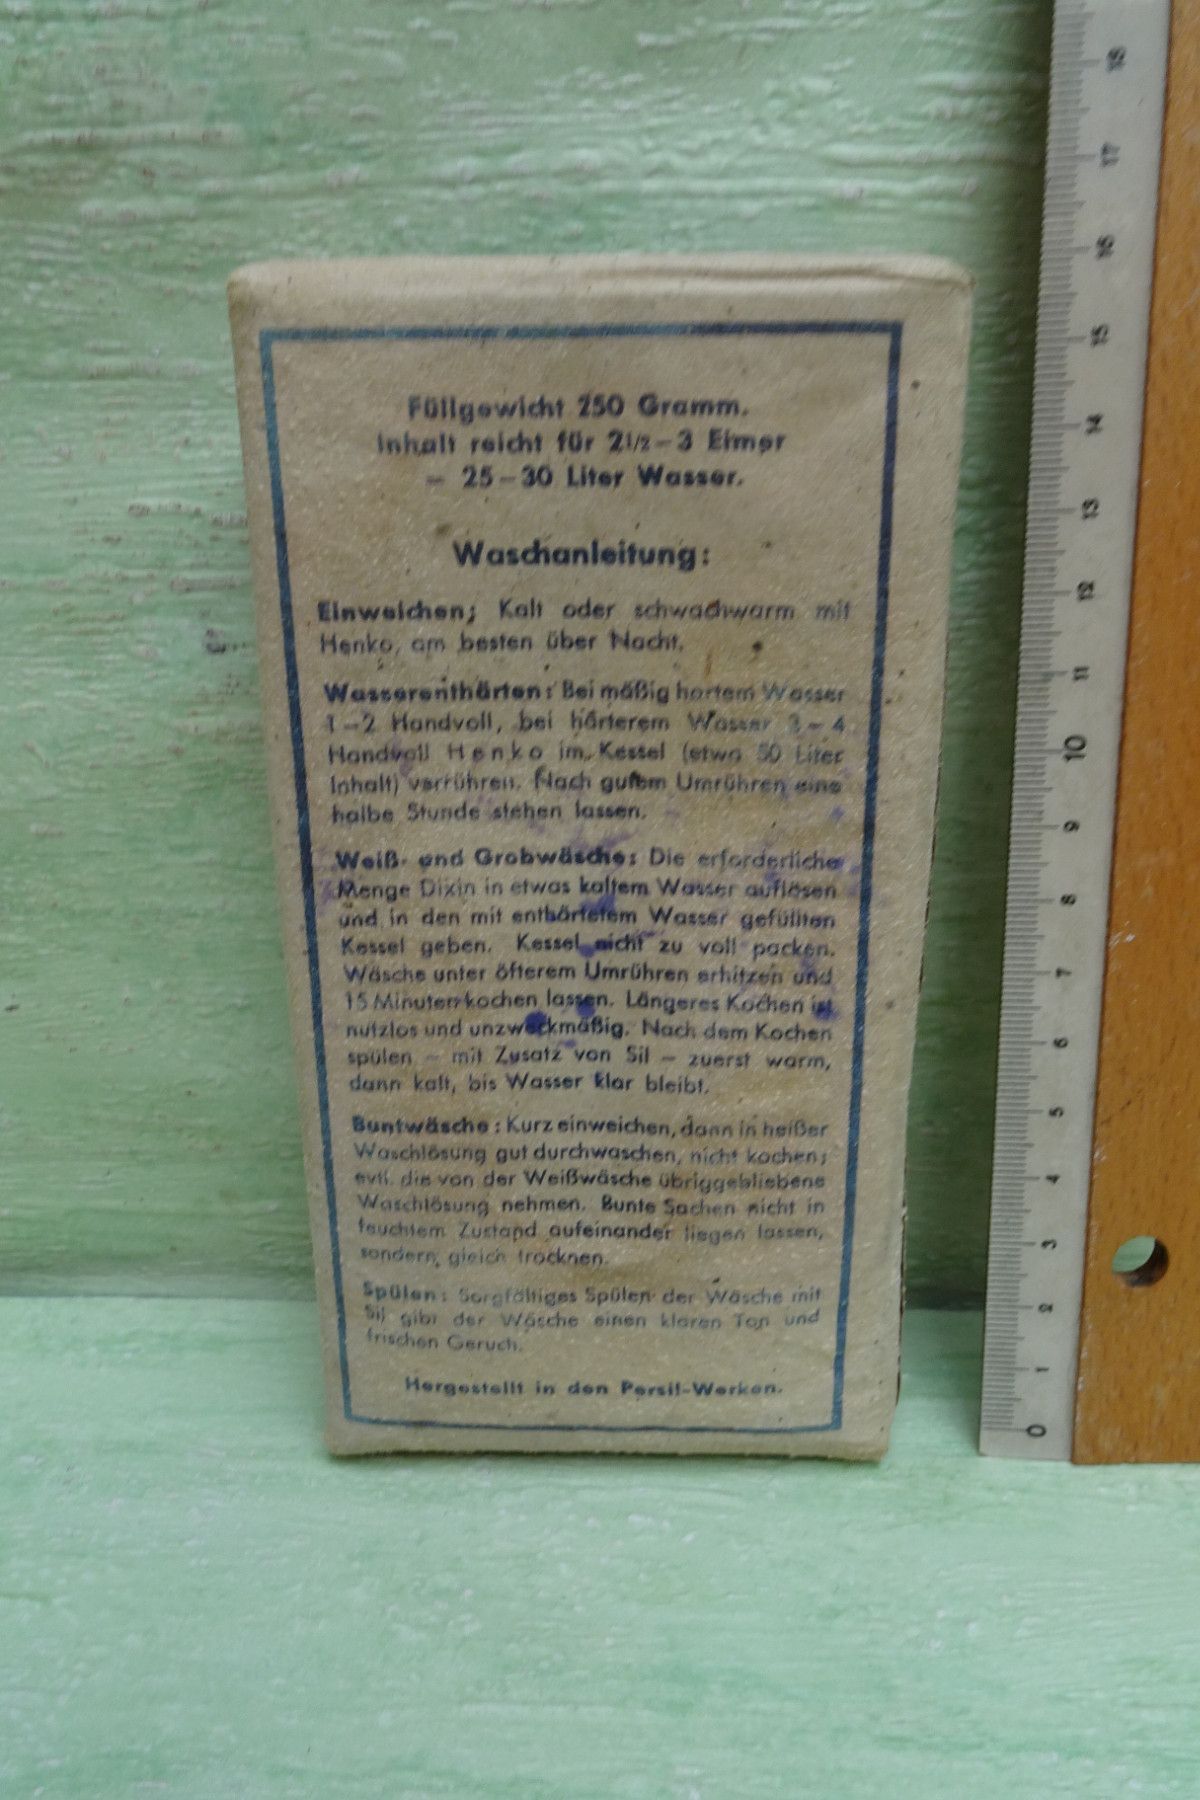 Füllgewicht 250 Gramm.
Inhalt reicht für 2 1/2 – 3 Eimer
– 25 – 30 Liter Wasser.
Waschanleitung:
Einweichen; Kalt oder schwachwarm mit
Henko, am besten über Nacht.
Wasserenthärten: Bei mäßig hartem Wasser
1 – 2 Handvoll, bei härterem Wasser 3 – 4
Handvoll Henko im Kessel (etwa 50 Liter
Inhalt) verrühren. Nach gutem Umrühren eine
halbe Stunde stehen lassen.
Weiß- und Grobwäsche: Die erforderliche
Menge Dixin in etwas kaltem Wasser auflösen
und in den mit enthärtetem Wasser gefüllten
Kessel geben. Kessel nicht zu voll packen.
Wäsche unter öfterem Umrühren erhitzen und
15 Minuten kochen lassen. Längeres Kochen ist
nutzlos und unzweckmäßig. Nach dem Kochen
spülen – mit Zusatz von Sil – zuerst warm,
dann kalt, bis Wasser klar bleibt.
Buntwäsche: Kurz einweichen, dann in heißer
Waschlösung gut durchwaschen, nicht kochen;
evtl. die von der Weißwäsche übriggebliebene
Waschlösung nehmen. Bunte Sachen nicht in
feuchtem Zustand aufeinander liegen lassen,
sondern gleich trocknen.
Spülen: Sorgfältiges Spülen der Wäsche mit
Sil gibt der Wäsche einen klaren Ton und
frischen Geruch.
Hergestellt in den Persil-Werken.
18
17
16
15
14
13
12
11
10
9
8
7
6
5
4
3
2
1
0